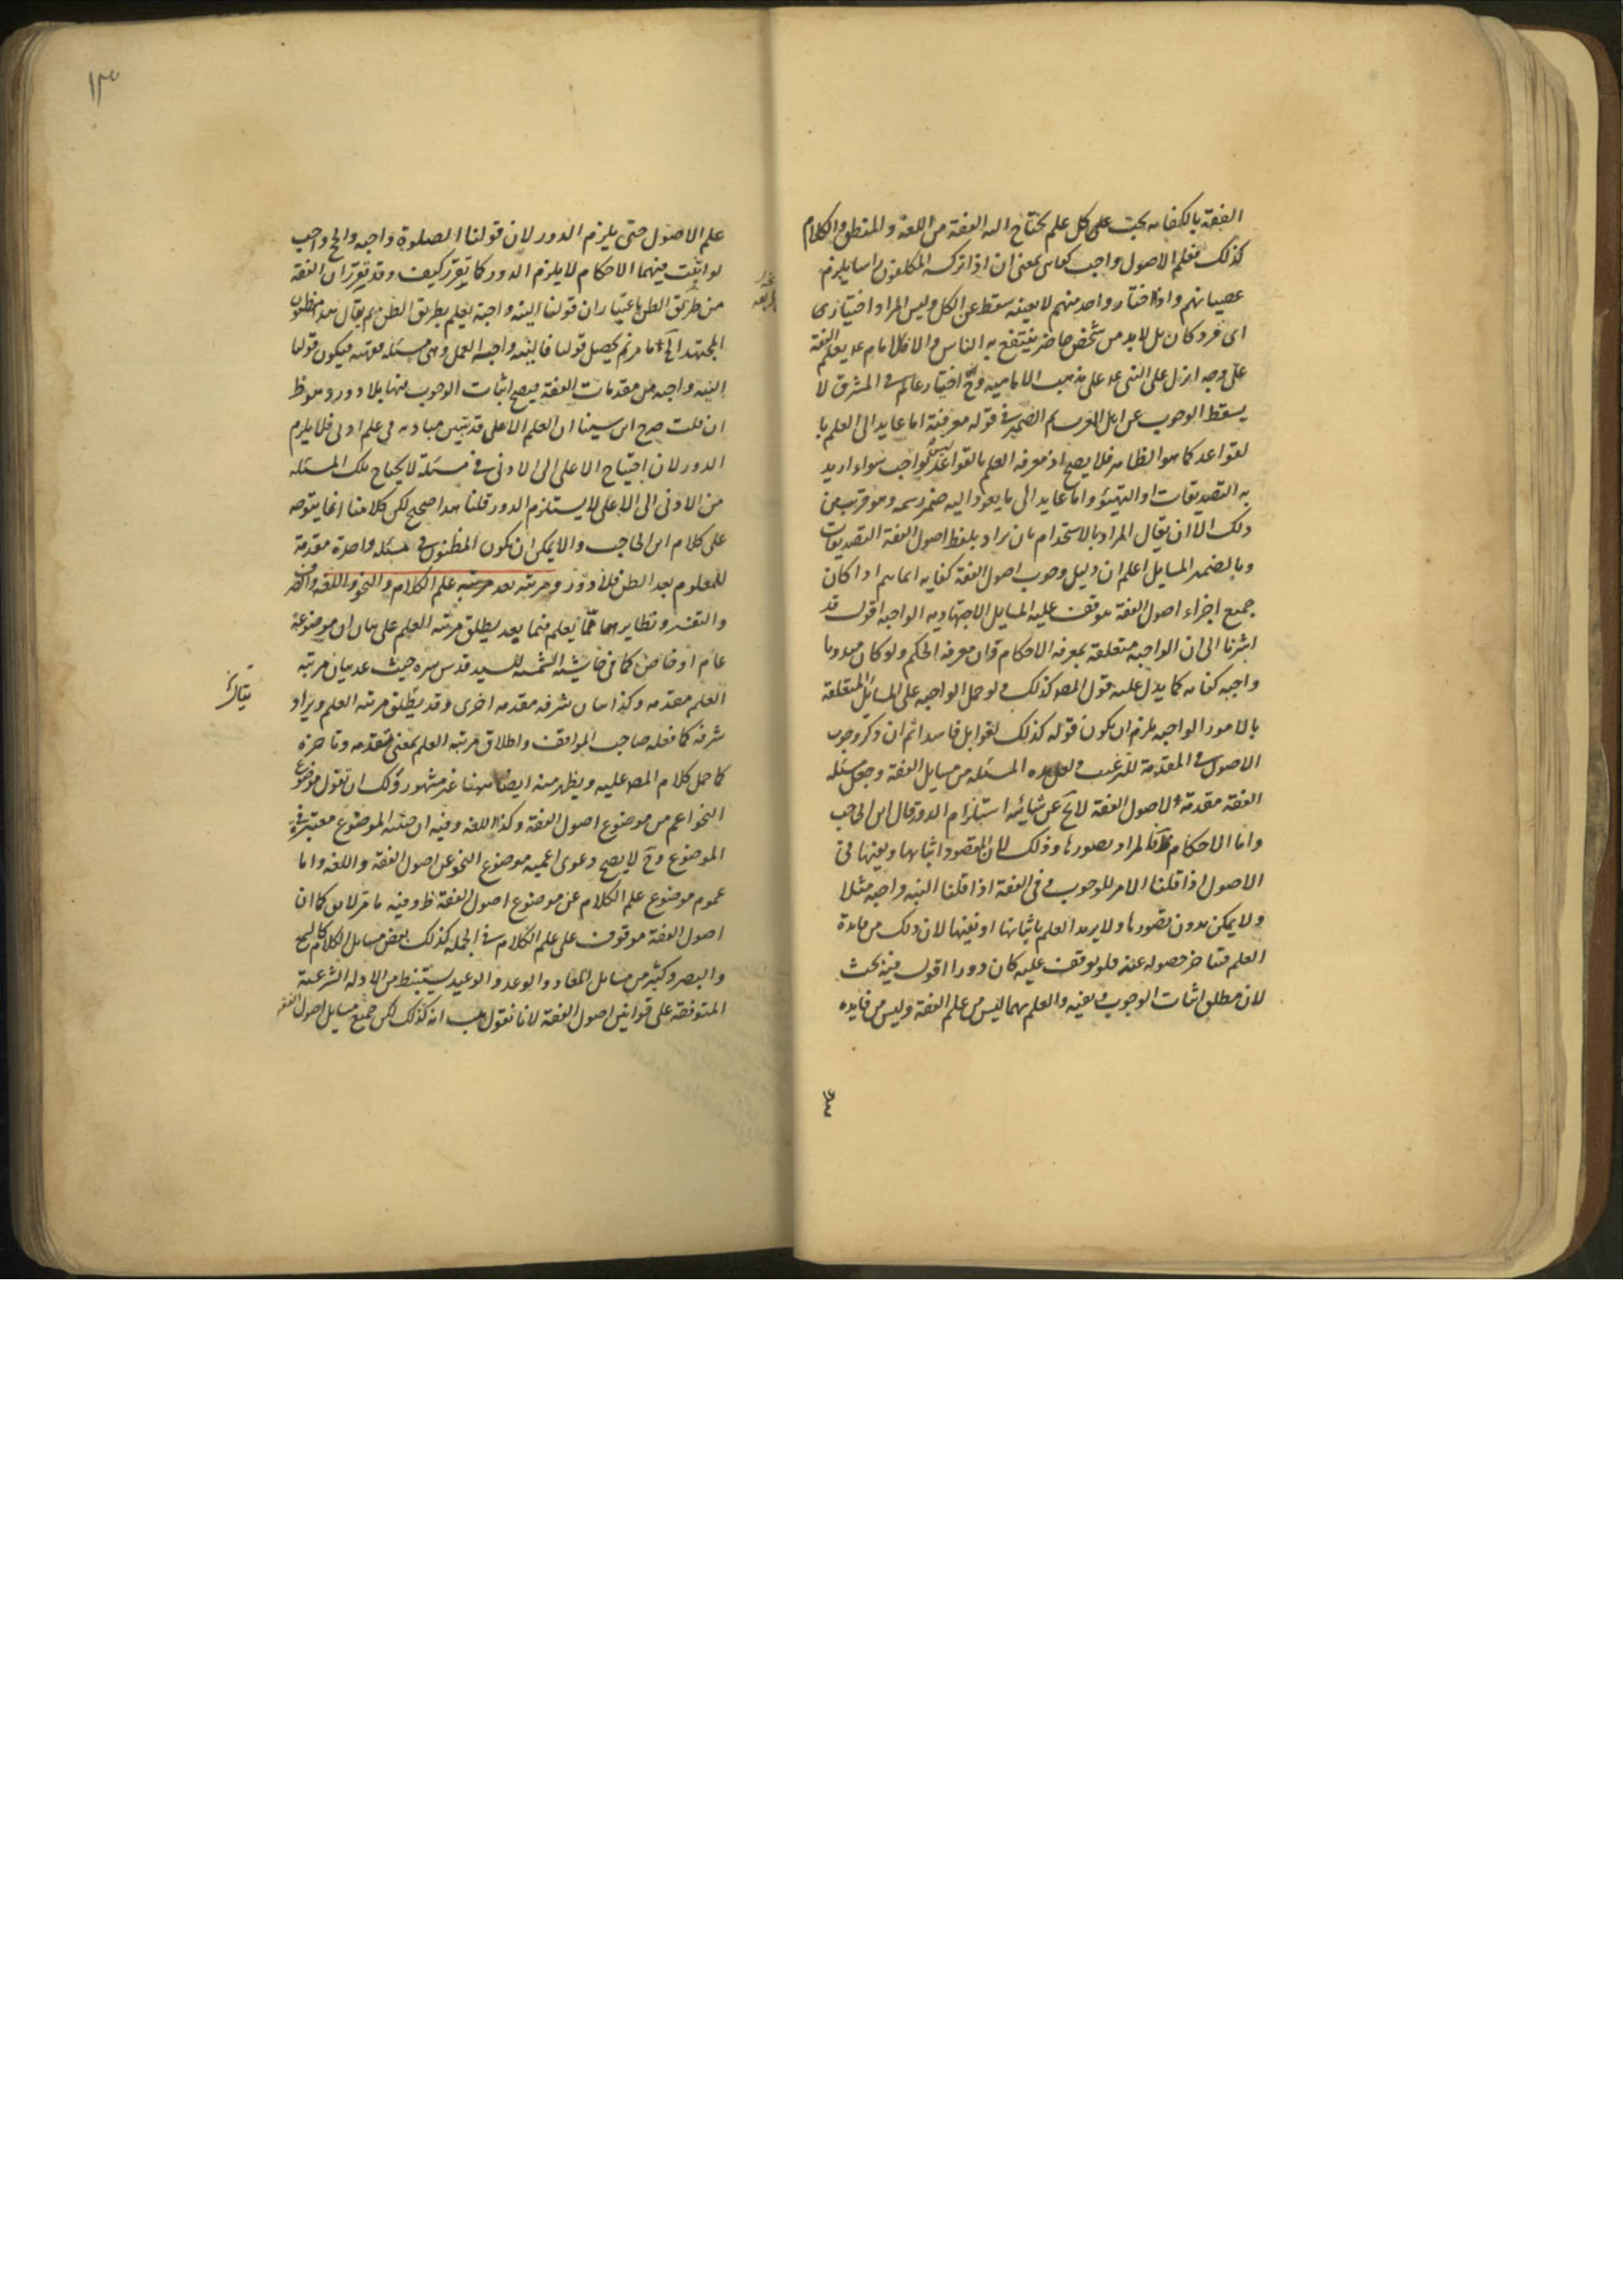 الفقه بالكفايه يجب على كل علم يحتاج اليه الفقه من اللغة والمنطق والكلام
كذلك فعلم الاصول واجب كفاىى بمعنى ان اذا تركه المكلفون راسا يلزم
عصيانهم واذا اختار واحد منهم لا بعينه سقط عن الكل وليس المراد اختيار
اى فرد كان بل لابد من شخص حاضر ينتفع به الناس والا فالامام ع يعلم الفقه
على وجه انزل على النبى ع على مذهب الاماميه وح اختيار عالم فى المشرق لا
يسقط الوجوب عن اهل المغرب ثم الضمير فى قوله معرفته اما عايد الى العلم با
لقواعد كما هو الظاهر فلا يصح اذ معرفه العلم بالقواعد ليس بواجب سواء اريد
به التصديقات او التهيئو واما عايد الى ما يعود اليه ضمير رسمه وهو قريب من
ذلك الا ان يقال المراد بالاستخدام بان يراد بلفظ اصول الفقه التصديقات
وبالضمير المسايل اعلم ان دليل وجوب اصول الفقه كفايه انما يتم اذا كان
جميع اجزاء اصول الفقه موقوف عليه المسايل الاجتهاديه الواجبه اقول قد
اشرنا الى ان الواجبه متعلقة بمعرفه الاحكام وان معرفه الحكم ولو كان مندوبا
واجبه كفايه كما يدل عليه قول المص كذلك ولو حمل الواجبه على المسائل المتعلقة
بالامور الواجبه يلزم ان يكون قوله كذلك لغوا بل فاسدا ثم ان ذكر وجوب
الاصول فى المقدمة للترغيب ولعل هذه المسئله من مسايل الفقه وجعل مسئله
الفقه مقدمة لاصول الفقه لا يخ عن شائبه استلزام الدور قال ابن الحاجب
واما الاحكام فالمراد تصورها وذلك لان المقصود اثباتها ونفيها فى
الاصول اذا قلنا الامر للوجوب وفى الفقه اذا قلنا النيه واجبه مثلا
ولا يمكن بدون تصورها ولا يريد العلم باثباتها او نفيها لان ذلك من فايدة
العلم فيتاخر حصوله عنه فلو توقف عليه كان دورا اقول فيه بحث
لان مطلق اثبات الوجوب ونفيه والعلم بهما ليس من علم الفقه وليس من فايده
١٣
علم الاصول حتى يلزم الدور لان قولنا الصلوة واجبه والحج واجب
لو اثبت فيهما الاحكام لا يلزم الدور كما تقرر كيف وقد تقرر ان الفقه
من طريق الظن باعتبار ان قولنا النيه واجبة يعلم بطريق الظن ثم يقال هذا مظنون
المجتهد الى اخر ما مر ثم يحصل قولنا فالنيه واجبه العمل وهى مسئله فقهيه فيكون قولنا
النيه واجبه من مقدمات الفقه فيصح اثبات الوجوب فيها بلا دور وهو ظ
ان قلت صرح ابن سينا ان العلم الاعلى قد يتبين مباديه فى علم ادنى فلا يلزم
الدور لان احتياج الاعلى الى الادنى فى مسئلة لا يحتاج تلك المسئله
من الادنى الى الاعلى لا يستلزم الدور قلنا هذا صحيح لكن كلامنا انما يتوجه
على كلام ابن الحاجب والا يمكن ان يكون المظنون فى مسئله واحدة مقدمة
للمعلوم بعد الظن فلا دور ومرتبته بعد مرتبه علم الكلام والنحو واللغه والصرف
والتفسير ونظايرها مما يعلم فيما بعد يطلق مرتبه العلم على بيان ان موضوعه
عام او خاص كما فى حاشيه الشمسيه للسيد قدس سره حيث عد بيان مرتبه
العلم مقدمه وكذا بيان شرفه مقدمه اخرى وقد يطلق مرتبه العلم ويراد
شرفه كما فعله صاحب المواقف واطلاق مرتبه العلم بمعنى تقدمه وتاخره
كما حمل كلام المص عليه ويظهر منه ايضا ههنا غير مشهور ولك ان تقول موضوع
النحو اعم من موضوع اصول الفقه وكذا اللغه وفيه ان حيثيه الموضوع معتبرة فى
الموضوع وح لا يصح دعوى اعميه موضوع النحو عن اصول الفقه واللغه واما
عموم موضوع علم الكلام عن موضوع اصول الفقه ظ وفيه ما مر لا يق كما ان
اصول الفقه موقوف على علم الكلام فى الجمله كذلك بعض مسايل الكلام كالسمع
والبصر وكثير من مسايل المعاد والوعد والوعيد يستنبط من الادله الشرعية
المتوقفة على قوانين اصول الفقه لانا نقول هب انه كذلك لكن جميع مسايل اصول الفقه